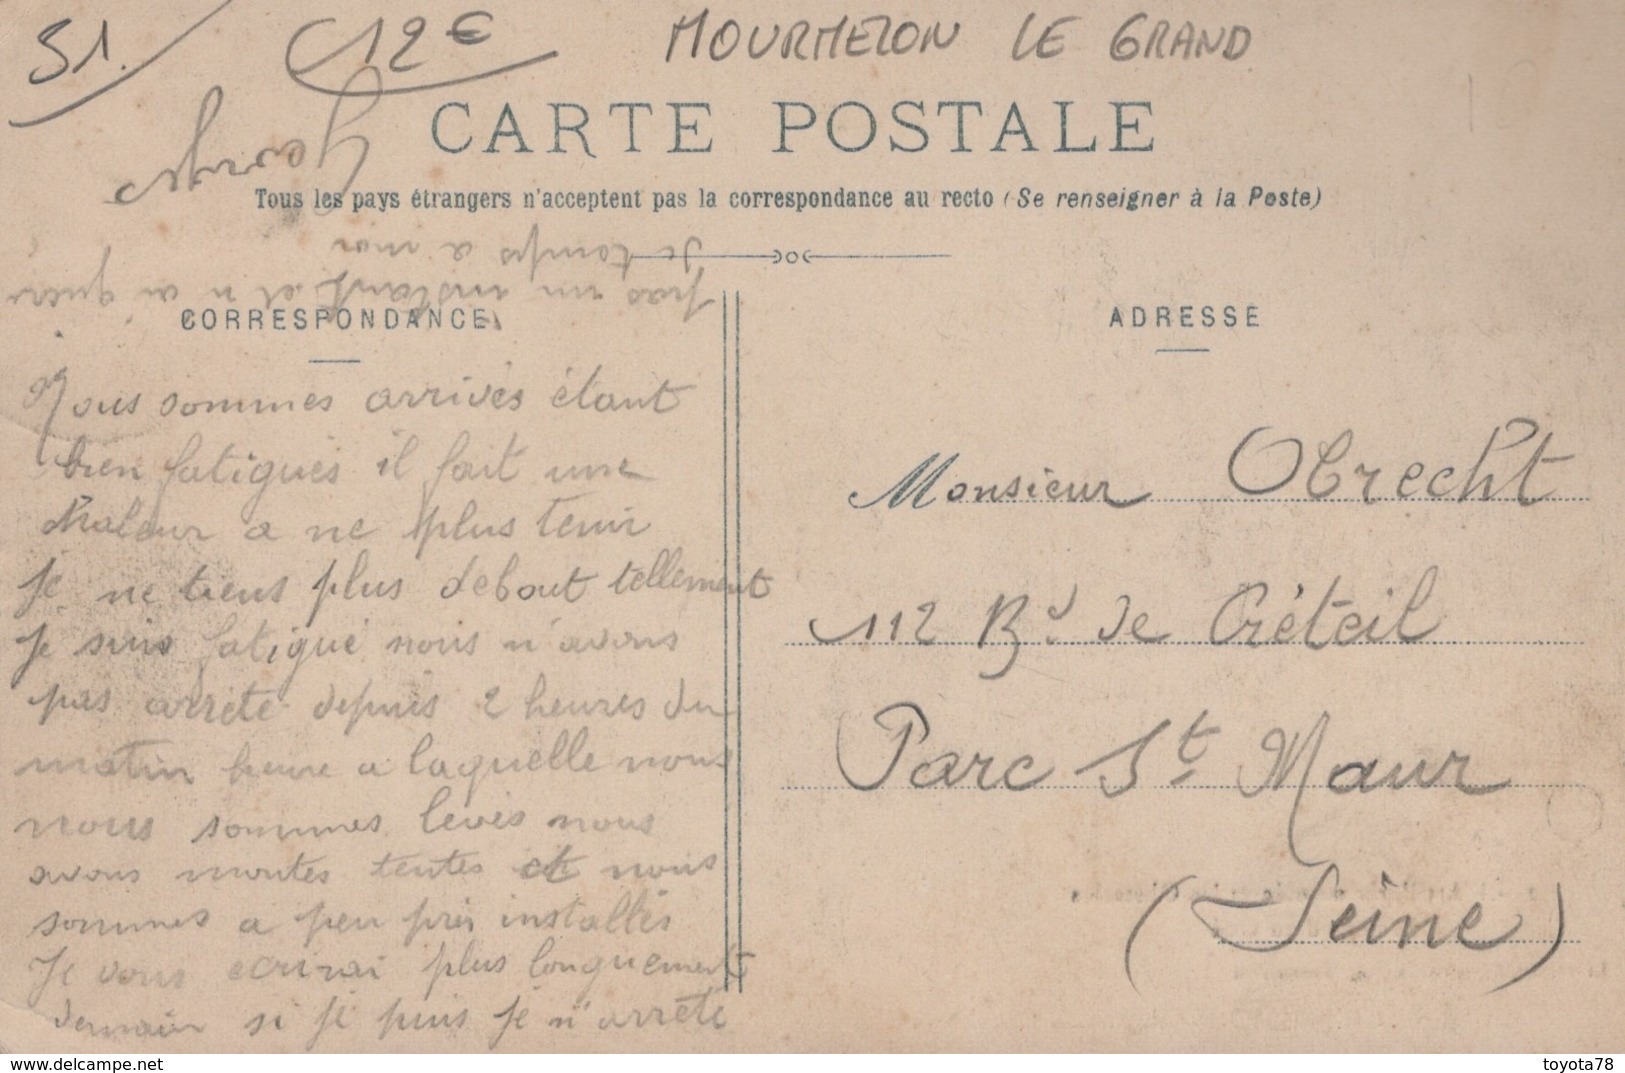 51.
12€
MOURMELON LE GRAND
CARTE POSTALE
Tous les pays étrangers n'acceptent pas la correspondance au recto (Se renseigner à la Poste)
CORRESPONDANCE
Nous sommes arrivés étant
bien fatigués il fait une
chaleur a ne plus tenir
Je ne tiens plus debout tellement
Je suis fatigué nous n'avons
pas arrete depuis 2 heures du
matin heure a laquelle nous
nous sommes levés nous
avons montes tentes et nous
sommes a peu près installés
Je vous ecrirai plus longuement
demain si je puis je n'arrete
pas un instant et n ai guere
de temps a moi
Georges
ADRESSE
Monsieur Obrecht
112 Bd de Créteil
Parc St Maur
(Seine)
www.delcampe.net
toyota78